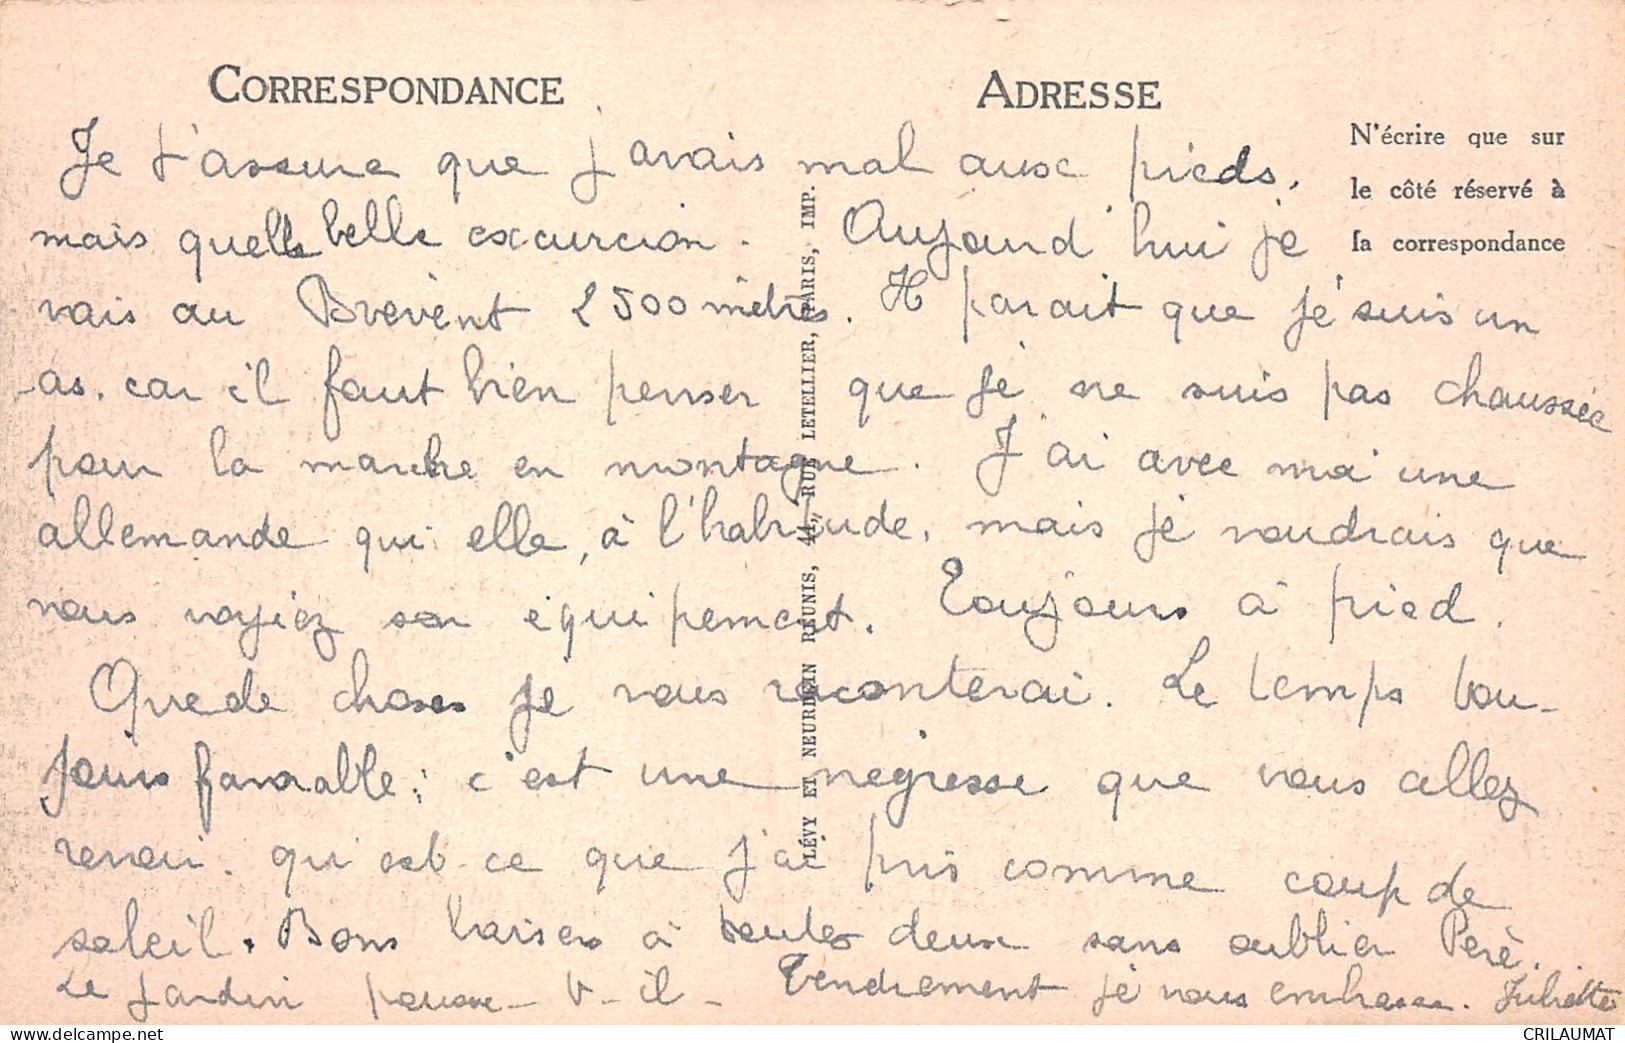 CORRESPONDANCE
ADRESSE
N'écrire que sur
le côté réservé à
la correspondance
Je t'assure que j'avais mal aux pieds,
mais quelle belle excurcion. Aujourd'hui je
vais au Brévent 2500 mètres. Il parait que je suis un
as. car il faut bien penser que je ne suis pas chaussée
pour la marche en montagne. J'ai avec moi une
allemande qui elle, à l'habitude, mais je voudrais que
vous voyiez son équipement. Toujours à pied.
Que de choses je vous raconterai. Le temps tou-
jours favorable; c'est une negresse que vous allez
revoir. qu'est-ce que j'ai pris comme coup de
soleil. Bons baisers à toutes deux sans oublier Père.
Le jardin pousse-t-il - Tendrement je vous embrasse. Juliette
LÉVY ET NEURDEIN RÉUNIS, 44, RUE LETELLIER, PARIS, IMP.
CRILAUMAT